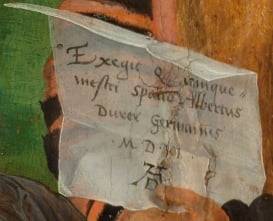 Exegit quinque
mestri spatio Albertus
Durer Germanus
· M · D · VI ·
AD